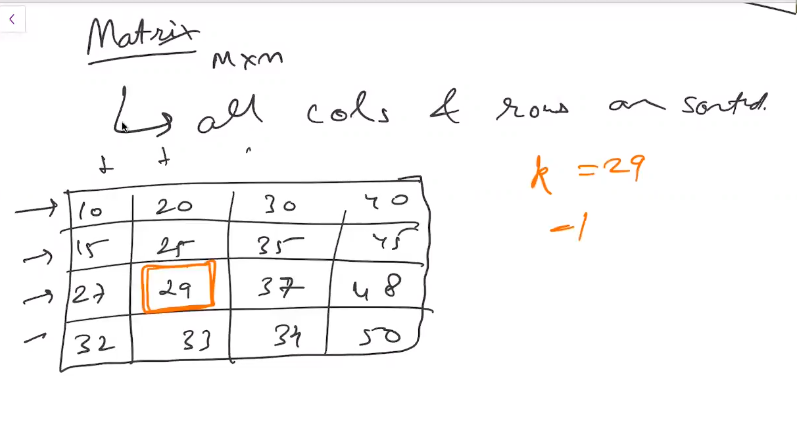 Matrix
MXM
all cols & rows are sorted.
10 20 30 40
15 25 35 45
27 29 37 48
32 33 34 50
k = 29
-1